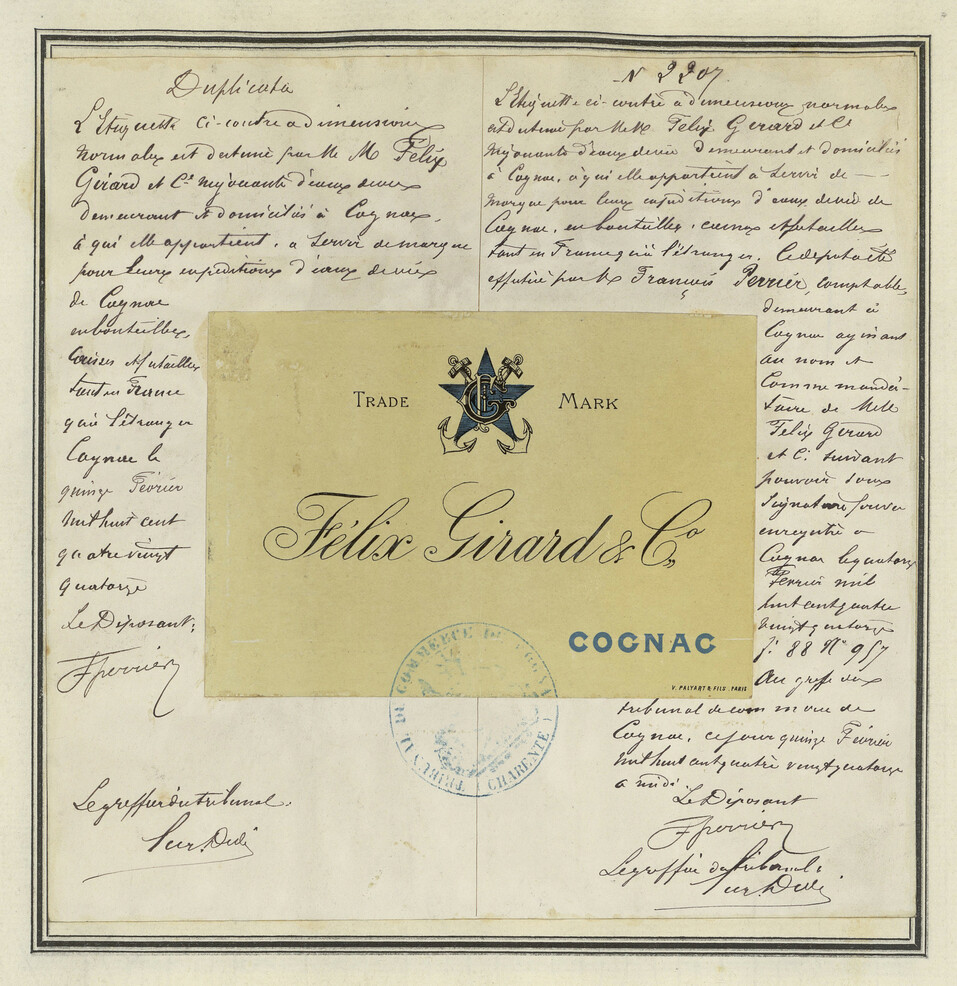 Duplicata
L'Etiquette ci-contre a dimensions
normales est destiné par Mr M Félix
Girard et Cie négociants d'eaux de vie
demeurant et domiciliés à Cognac,
à qui elle appartient, a servir de marque
pour leurs expéditions d'eaux de vie
de Cognac
en bouteilles,
caisses et futailles
tant en France
qu'à l'étranger
Cognac le
quinze Février
mil huit cent
quatre vingt
quatorze
Le Déposant;
Fperrier
Le greffier du tribunal.
N 2207.
L'Etiquette ci-contre a dimensions normales
est destiné par MM. Félix Gerard et Cie
négociants d'eaux de vie demeurant et domiciliés
à Cognac, à qui elle appartient à servir de
marque pour leurs expéditions d'eaux de vie de
Cognac, en bouteilles, caisses et futailles
tant en France qu'à l'étranger. Ce dépôt a été
effectué par M. François Perrier, comptable,
demeurant à
Cognac agissant
au nom et
comme manda-
taire de MM
Félix Gerard
et Cie suivant
pouvoir sous
signature privée
enregistré a
Cognac le quatorze
Février mil
huit cent quatre
vingt quatorze
fo 88 No 957
Au greffe du
tribunal de commerce de
Cognac, ce jour quinze Février
mil huit cent quatre vingt quatorze
a midi.
Le Déposant
Fperrier
Le greffier du tribunal;
TRADE MARK
Félix Girard & Co,
COGNAC
V. PALYART & FILS, PARIS
TRIBUNAL DE COMMERCE DE COGNAC
(CHARENTE)